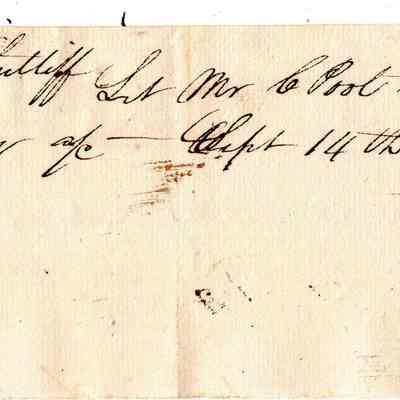 utliff Let Mr C Pool
a/c — Sept 14th